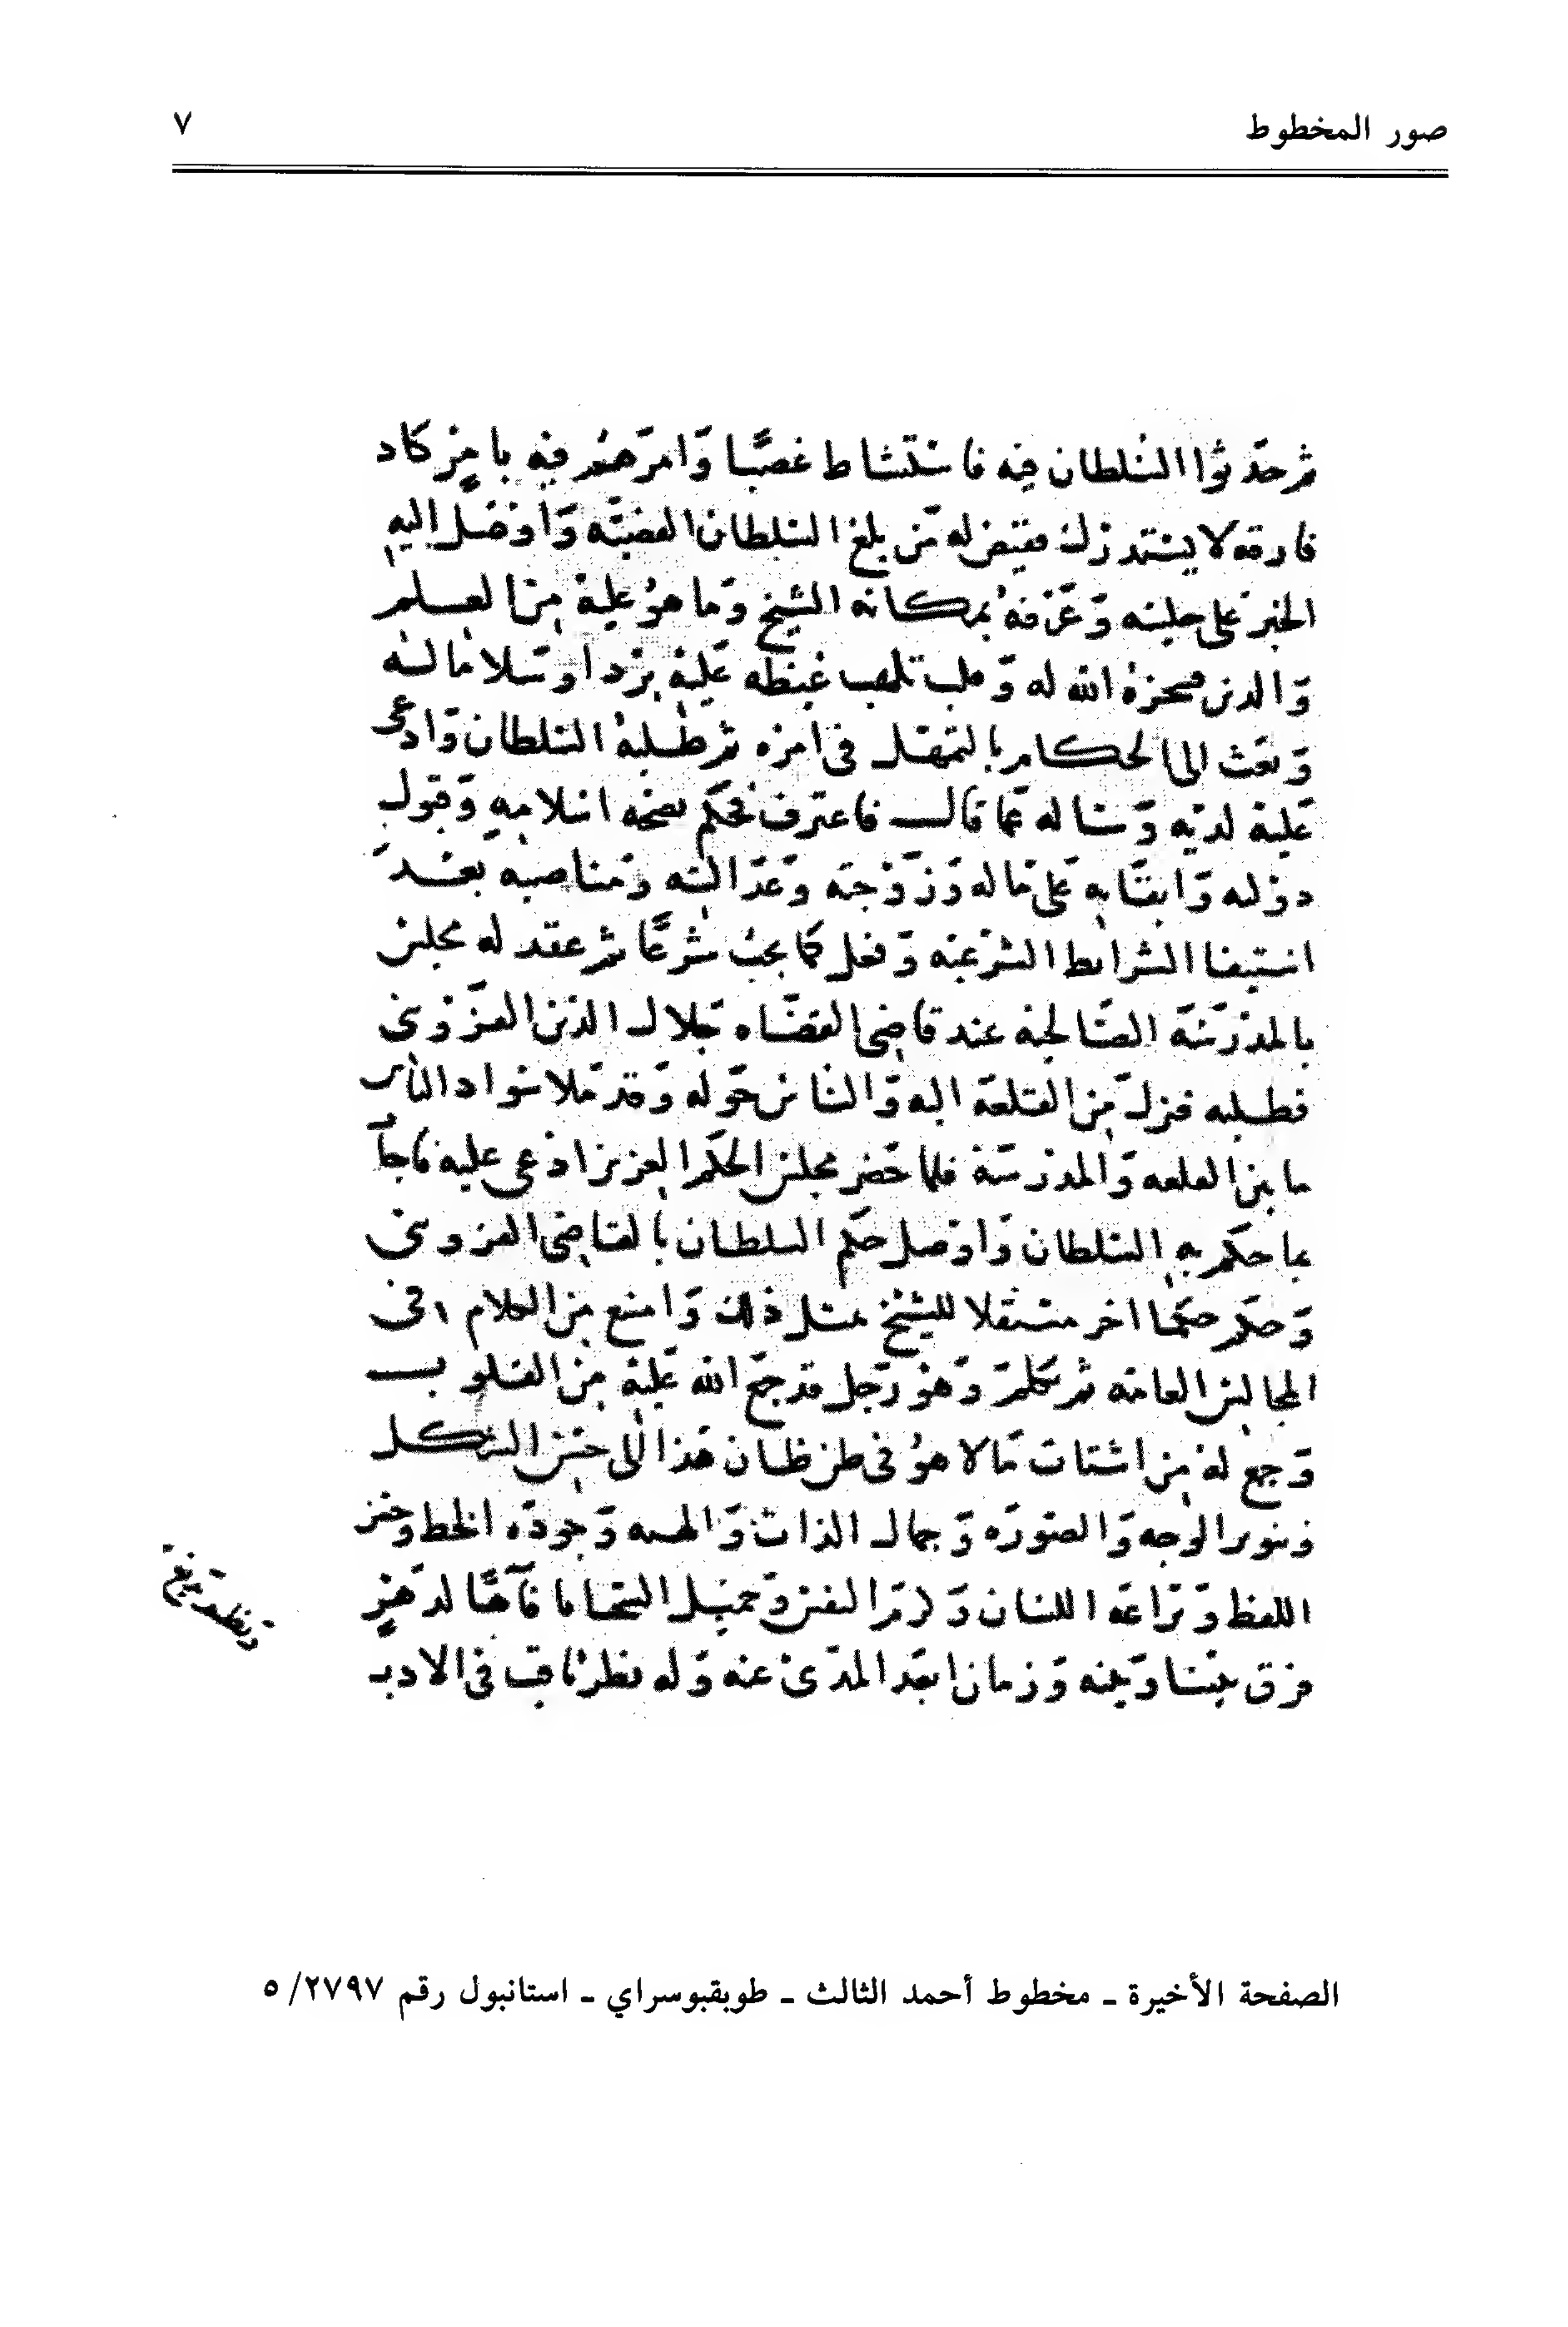 صور المخطوط
٧
ثم حدثوا السلطان فيه فاستشاط غضبا وامرهم فيه بامر كاد
فارقه لا يستدرك فقيض له من بلغ السلطان القضية واوصل اليه
الخبر على جليته وعرفه بمكانة الشيخ وما هو عليه من العلم
والدين الله له وقلب تلهب غيظه عليه بردا وسلاما له
وبعث الى الحكام بالتمهل في امره ثم طلبه السلطان وادعى
عليه لديه وسأله عما قال فاعترف فحكم بصحة اسلامه وقبول
وابقائه على ماله وزوجته وعدالته ومناصبه بعد
استيفا الشرايط الشرعيه وفعل كما يجب شرعا ثم عقد له مجلس
بالمدرسة الصالحيه عند قاضي القضاه جلال الدين القزويني
فطلبه فنزل من القلعة اليه والناس حوله وقد ملا سواد الناس
ما بين القلعه والمدرسة فلما حضر مجلس الحكم العزيز ادعى عليه فاجاب
بما حكم به السلطان واوصل حكم السلطان بالقاضي القزويني
وحكم حكما اخر مستقلا للشيخ بمثل ذلك وامنع من الكلام في
المجالس العامه ثم تكلم وهو رجل قد جمع الله عليه من القلوب
وجمع له من اشتات ما لا هو في ظن ظان هذا الى حسن الشكل
وتنوير الوجه والصورة وجمال الذات والهيه وجودة الخط وحسن
اللفظ وبراعة اللسان وكرم النفس وجميل السجايا فآها لدهر
فرق بيننا وبينه وزمان ابعد المدى عنه وله نظر ثاقب في الادب
الصفحة الأخيرة ـ مخطوط أحمد الثالث ـ طوبقبوسراي ـ استانبول رقم ٢٧٩٧/ ٥